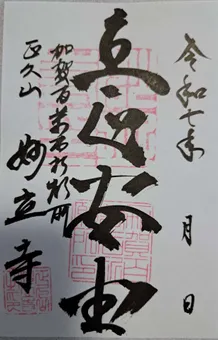 令和七年 月 日
立正安国
加賀百萬石祈願所
正久山
妙立寺